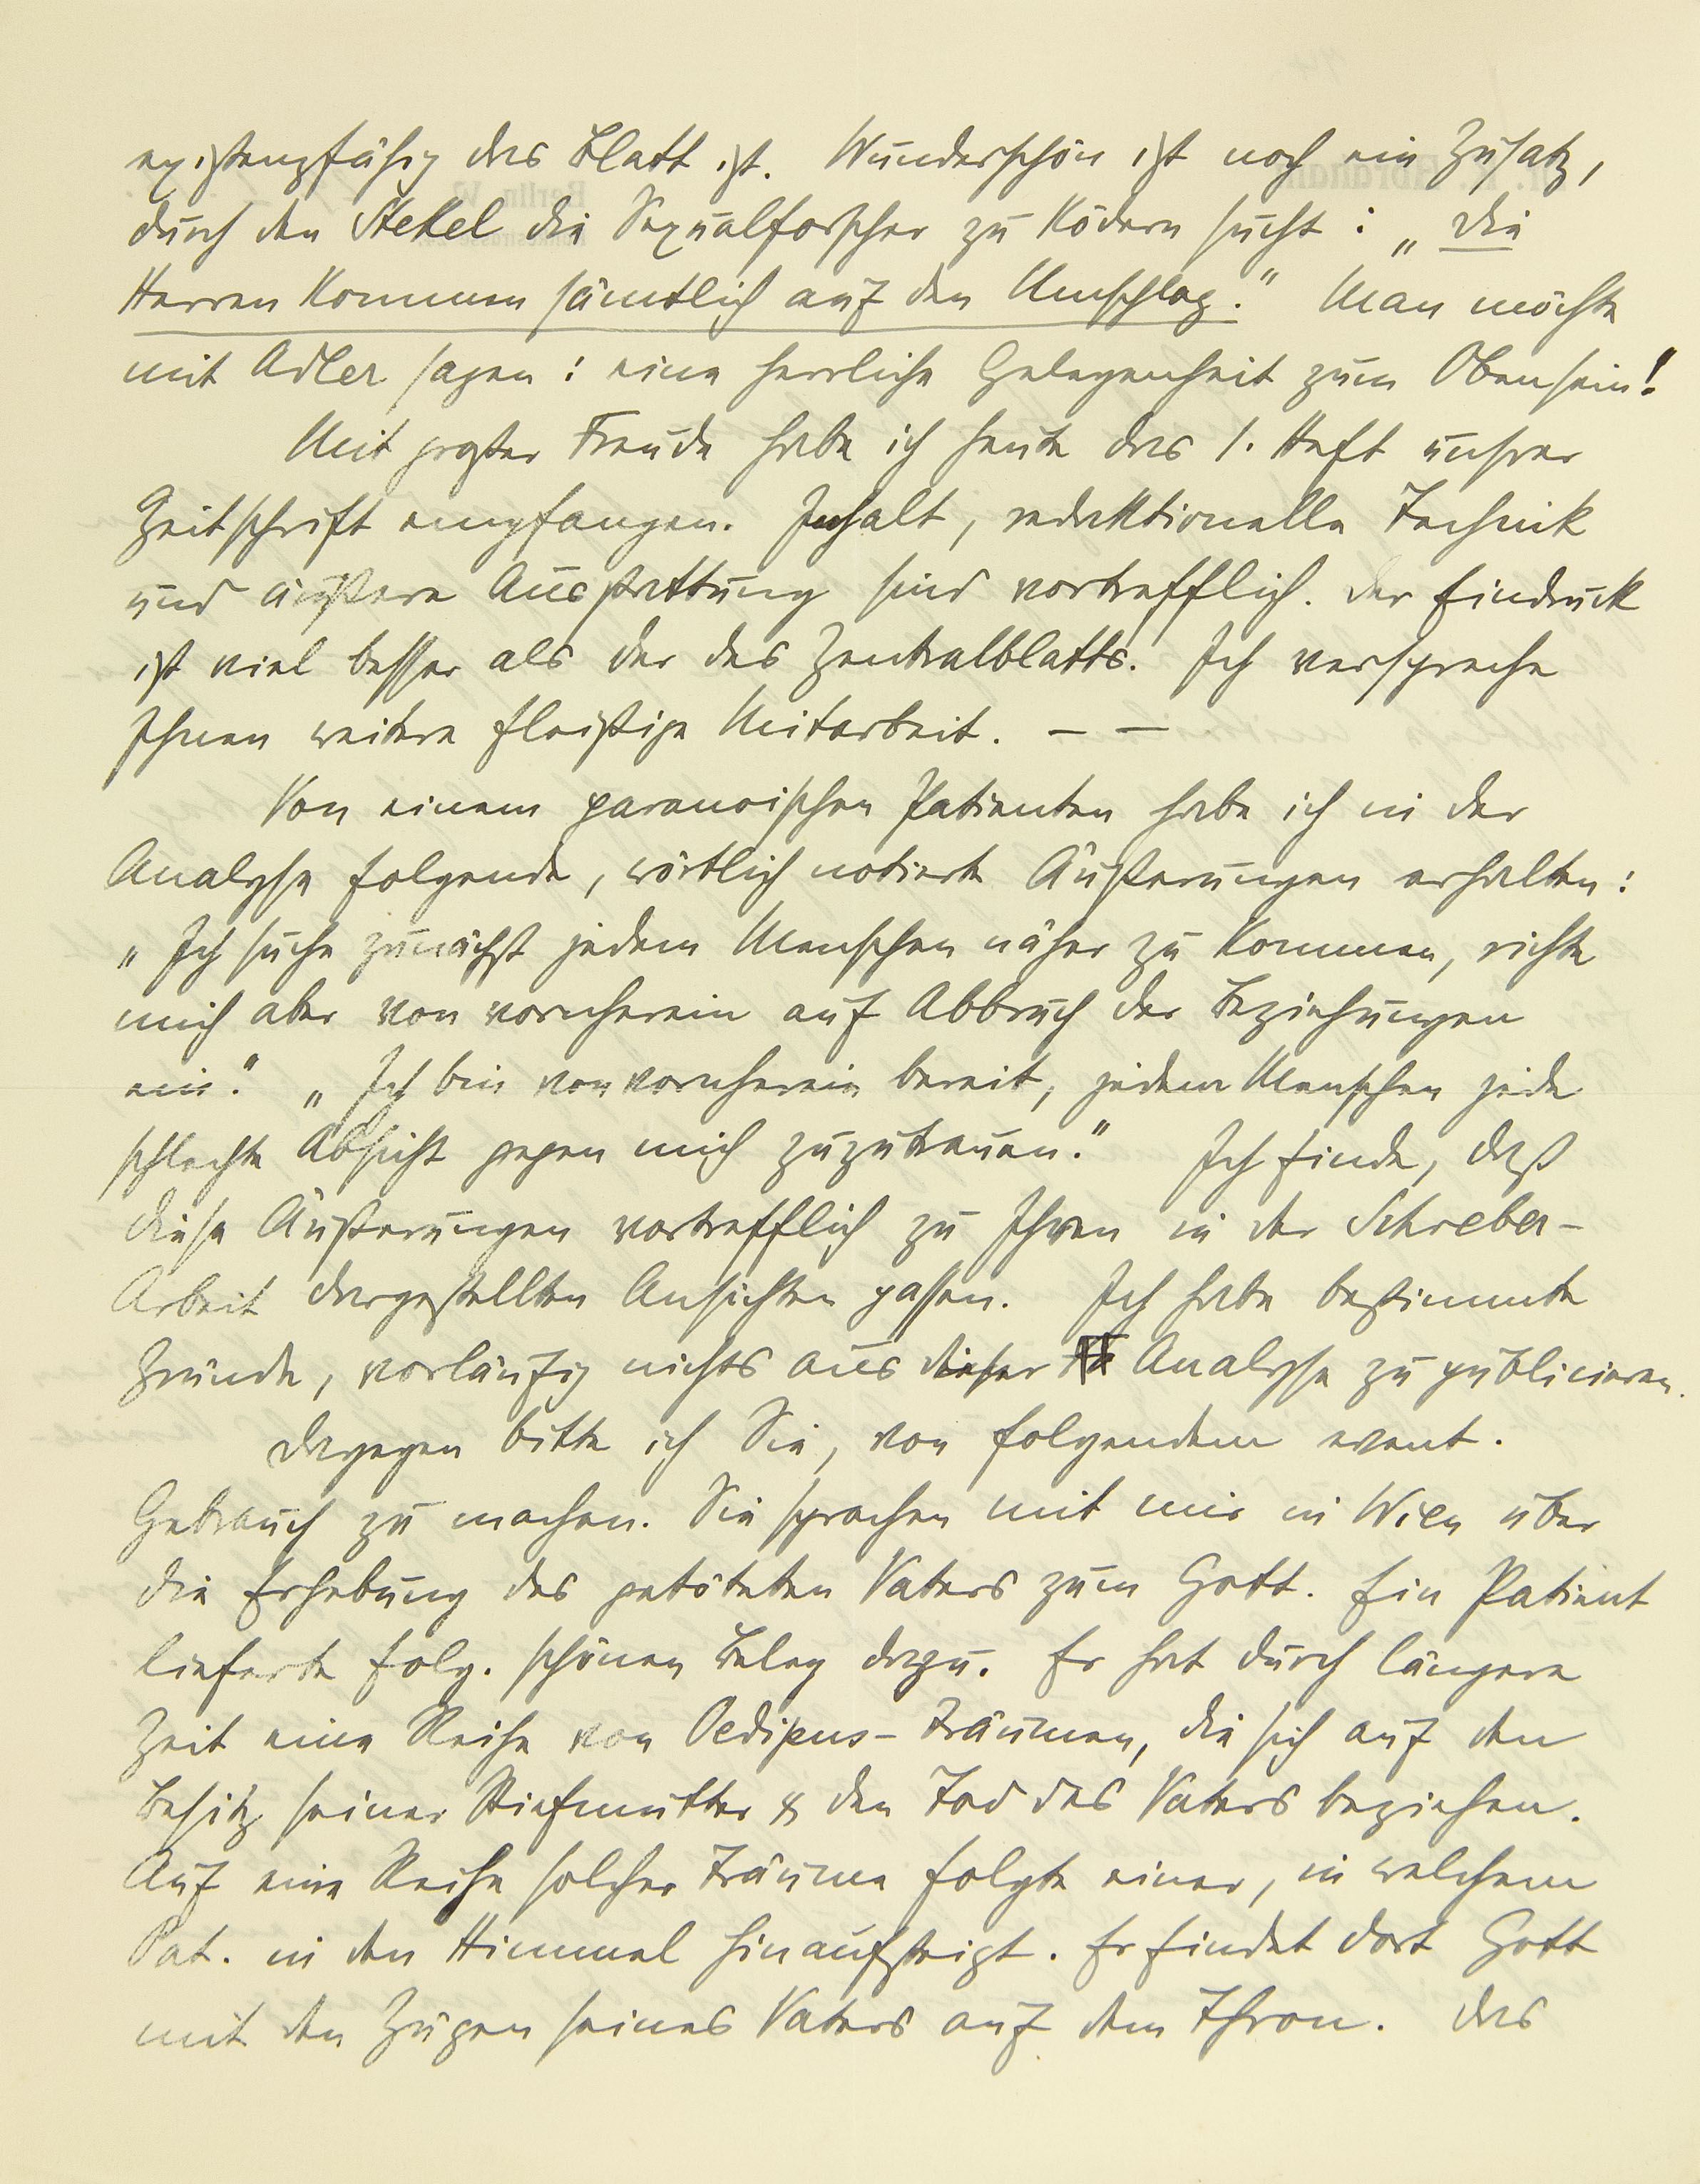 existenzfähig das Blatt ist. Wunderschön ist noch ein Zusatz,
durch den Stekel die Sexualforscher zu ködern sucht: „Die
Herren kommen sämtlich auf den Umschlag.“ Man möchte
mit Adler sagen: eine herrliche Gelegenheit zum Obensein!
Mit großer Freude habe ich heute das 1. Heft unsrer
Zeitschrift empfangen. Inhalt, redaktionelle Technik
und äußere Ausstattung sind vortrefflich. Der Eindruck
ist viel besser als der des Zentralblatts. Ich verspreche
Ihnen weitere fleißige Mitarbeit. — —
Von einem paranoischen Patienten habe ich in der
Analyse folgende, wörtlich notierte Äußerungen erhalten:
„Ich suche zunächst jedem Menschen näher zu kommen, richte
mich aber von vornherein auf Abbruch der Beziehungen
ein.“ „Ich bin von vornherein bereit, jedem Menschen jede
schlechte Absicht gegen mich zuzutrauen.“ Ich finde, daß
diese Äußerungen vortrefflich zu Ihren in der Schreber-
Arbeit dargestellten Ansichten passen. Ich habe bestimmte
Gründe, vorläufig nichts aus dieser Analyse zu publicieren.
Dagegen bitte ich Sie, von folgendem event.
Gebrauch zu machen. Sie sprachen mit mir in Wien über
die Erhebung des getöteten Vaters zum Gott. Ein Patient
lieferte folg. schönen Beleg dazu. Er hat durch längere
Zeit eine Reihe von Oedipus-Träumen, die sich auf den
Besitz seiner Stiefmutter & den Tod des Vaters beziehen.
Auf eine Reihe solcher Träume folgte einer, in welchem
Pat. in den Himmel hinaufsteigt. Er findet dort Gott
mit den Zügen seines Vaters auf dem Thron. Das